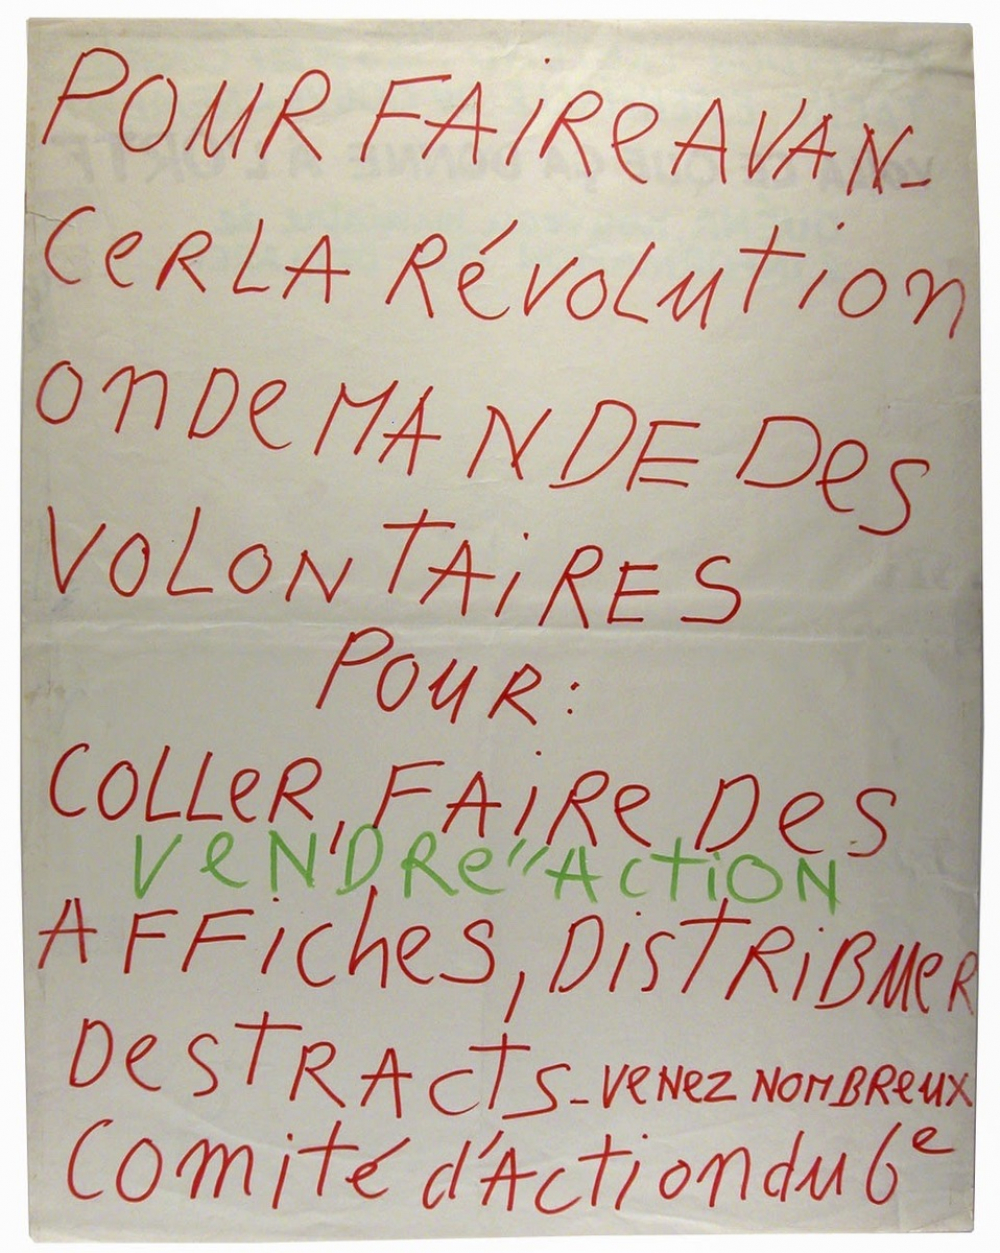 POUR FAIRE AVAN-
CER LA RÉVOLUTION
ON DEMANDE DES
VOLONTAIRES
POUR :
COLLER, FAIRE DES
VENDRE "ACTION
AFFICHES, DISTRIBUER
DES TRACTS - VENEZ NOMBREUX
Comité d'Action du 6e